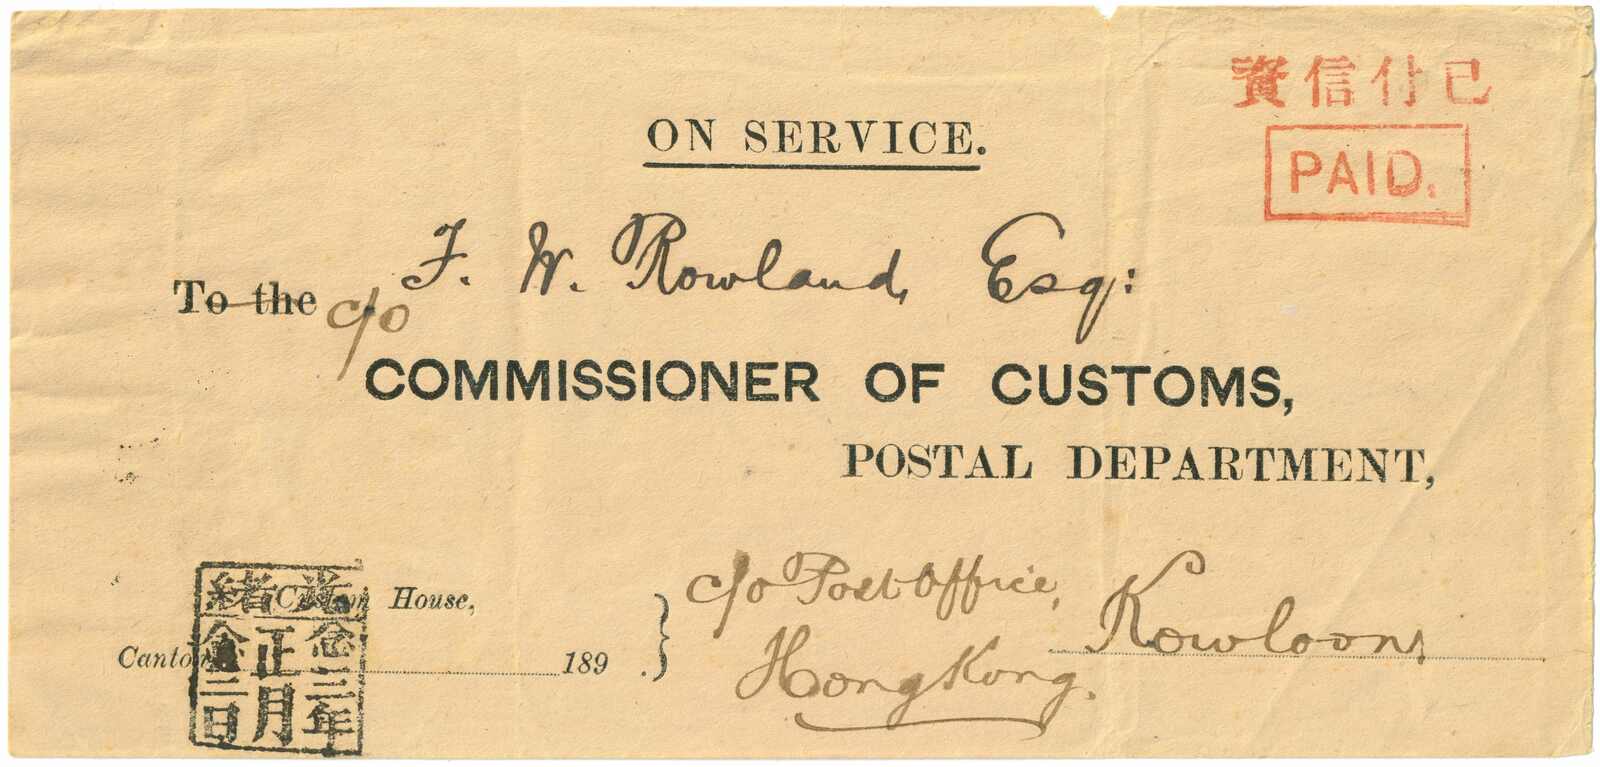 已付信資
PAID.
ON SERVICE.
F. W. Rowland, Esq:
To the c/o
COMMISSIONER OF CUSTOMS,
POSTAL DEPARTMENT,
c/o Post Office, Kowloon
Hong Kong.
Custom House,
Canton 189 .
光緒
念三年
正月
念二日